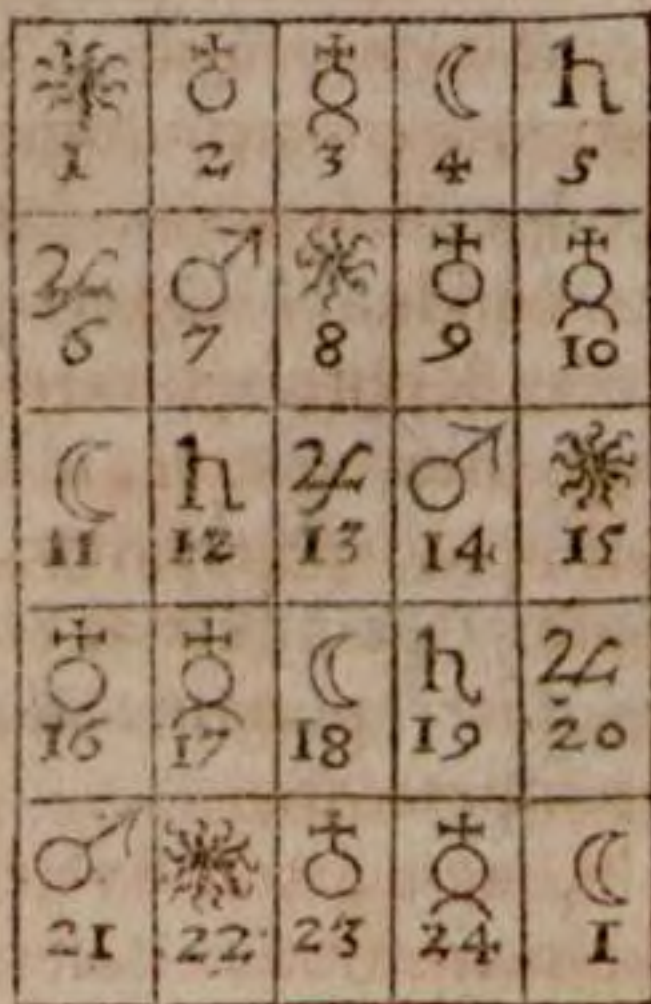 1 2 3 4 5
6 7 8 9 10
11 12 13 14 15
16 17 18 19 20
21 22 23 24 1